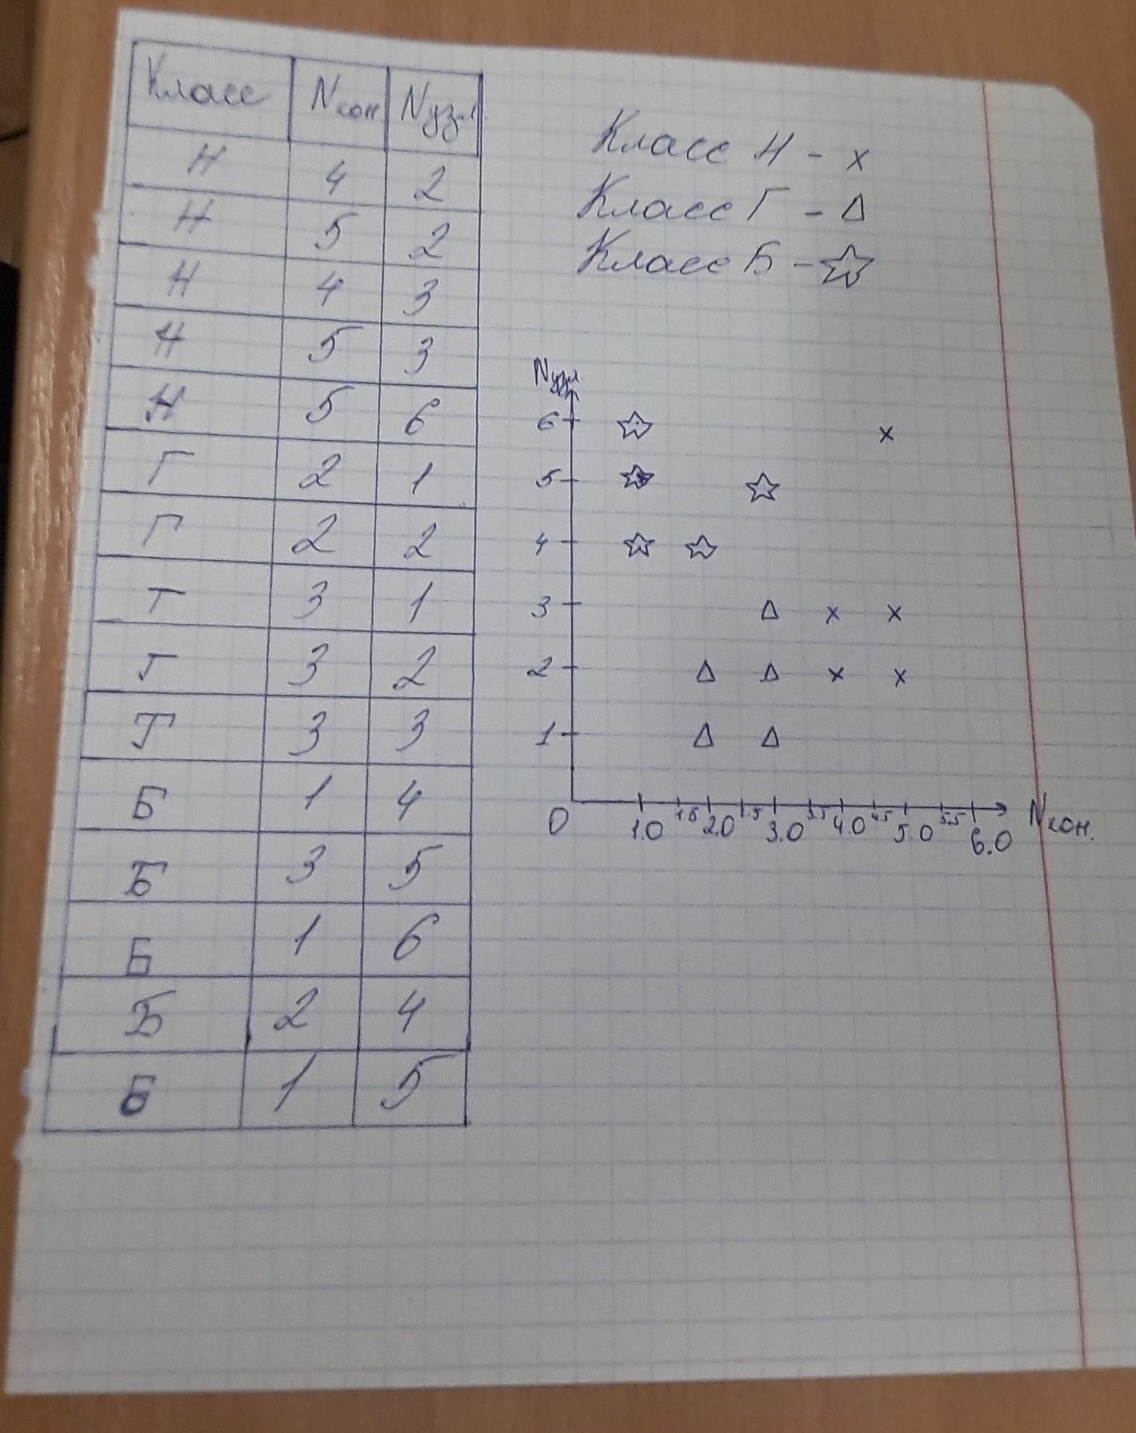 Класс Nкон Nузл
Н 4 2
Н 5 2
Н 4 3
Н 5 3
Н 5 6
Г 2 1
Г 2 2
Г 3 1
Г 3 2
Г 3 3
Б 1 4
Б 3 5
Б 1 6
Б 2 4
Б 1 5
Класс Н - x
Класс Г - Δ
Класс Б - ☆
Nузл
6
5
4
3
2
1
0 1.0 1.5 2.0 2.5 3.0 3.5 4.0 4.5 5.0 5.5 6.0 Nкон.